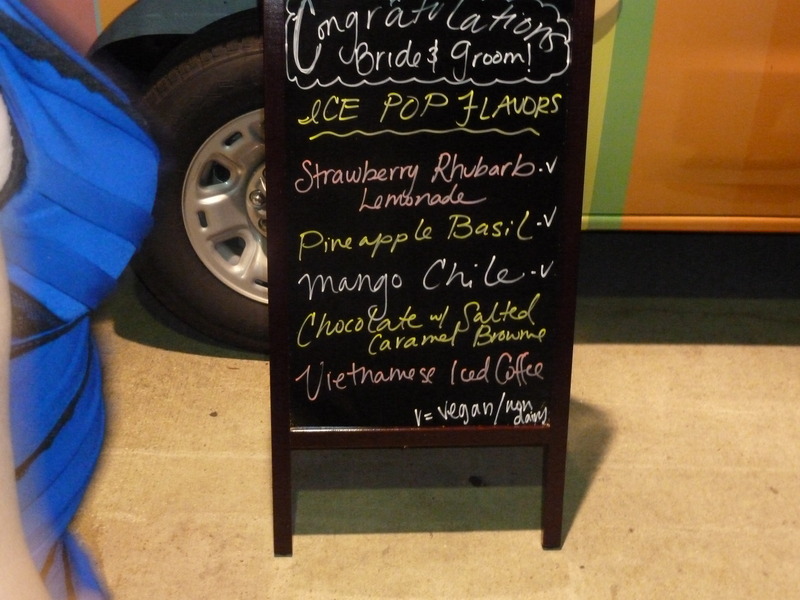 Congratulations
Bride & Groom!
ICE POP FLAVORS
Strawberry Rhubarb -V
Lemonade
Pineapple Basil -V
Mango Chile -V
Chocolate w/ Salted
Caramel Brownie
Vietnamese Iced Coffee
V = vegan/non
dairy